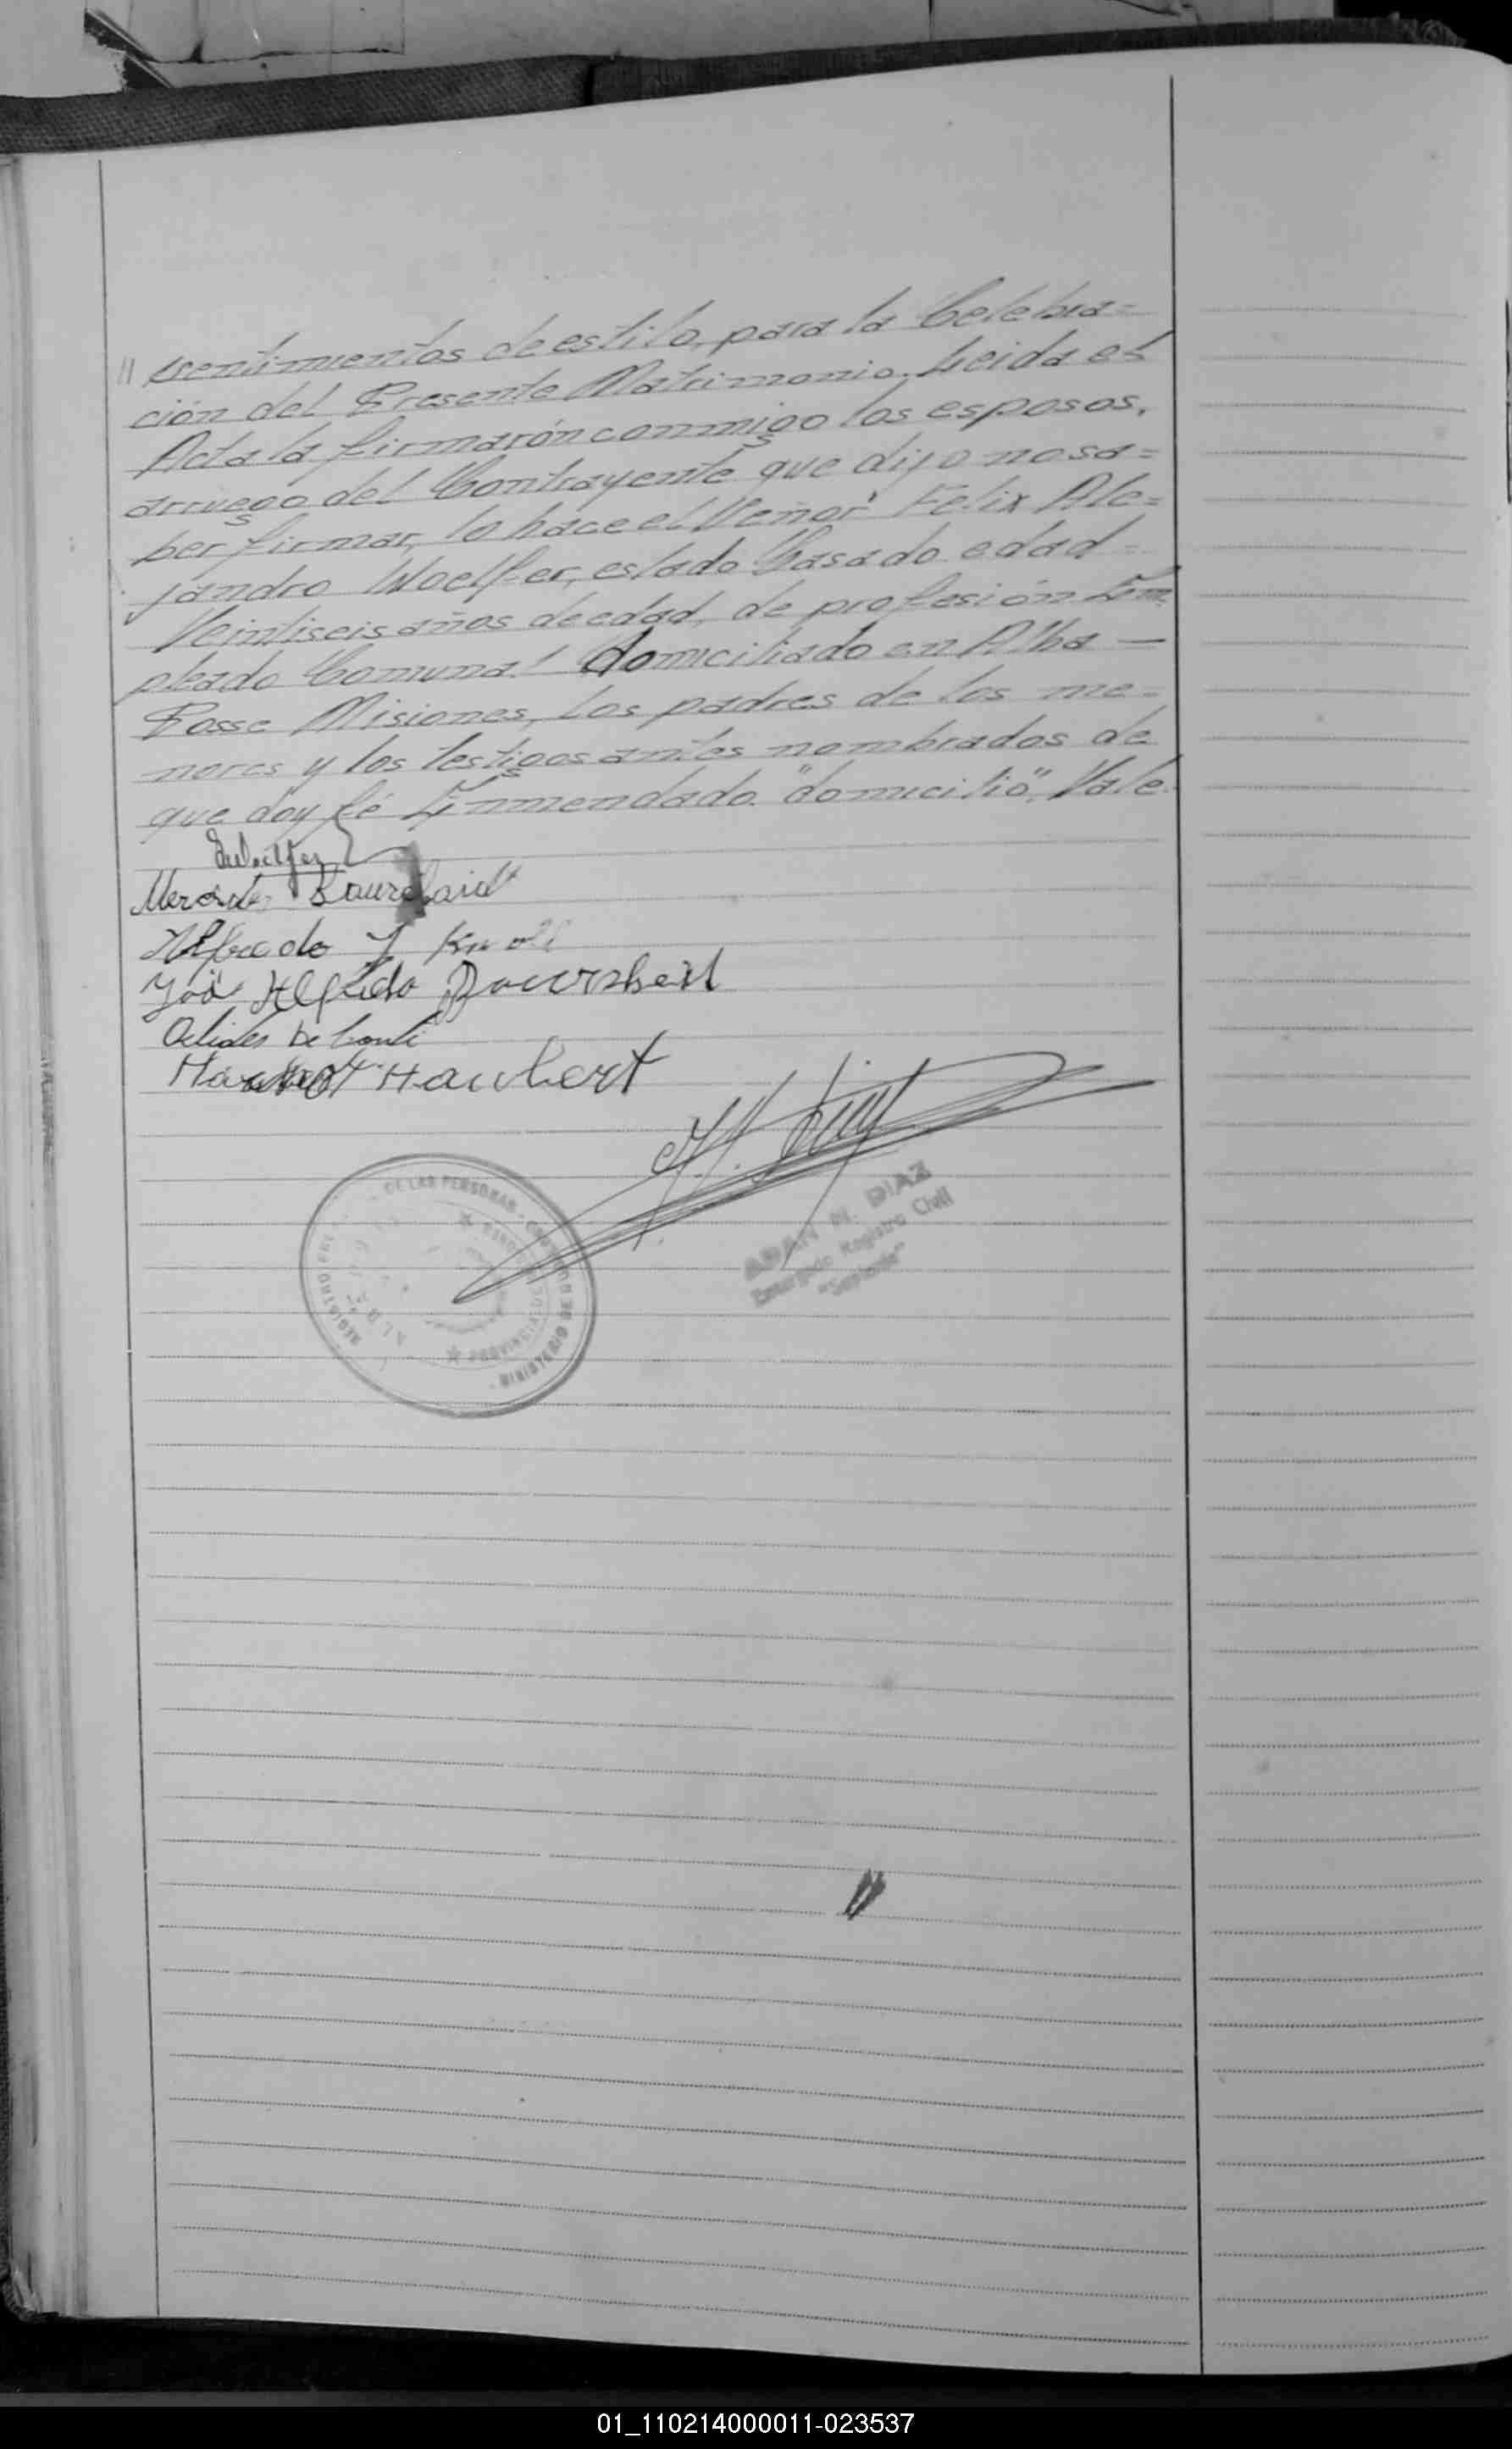 // sentimientos de estilo, para la Celebra=
ción del Presente Matrimonio. Leida el
Acta la firmarón conmigo los esposos,
arruego del Contrayente que dijo nosa=
ber firmar, lo hace el Señor Felix Ale=
jandro Woelfer, estado Casado edad
Veintiseis años de edad, de profesión Em
pleado Comunal domiciliado en Alba —
Posse Misiones, Los padres de los me=
nores y los testigos antes nombrados de
que doy fé Enmendado "domicilio", Vale.
Mercedes
Alfredo J
José Alfredo
De Conti
Haubert
ADAN N. DIAZ
Encargado Registro Civil
DE LAS PERSONAS
REGISTRO
MINISTERIO DE
PROVINCIA DE
01_110214000011-023537